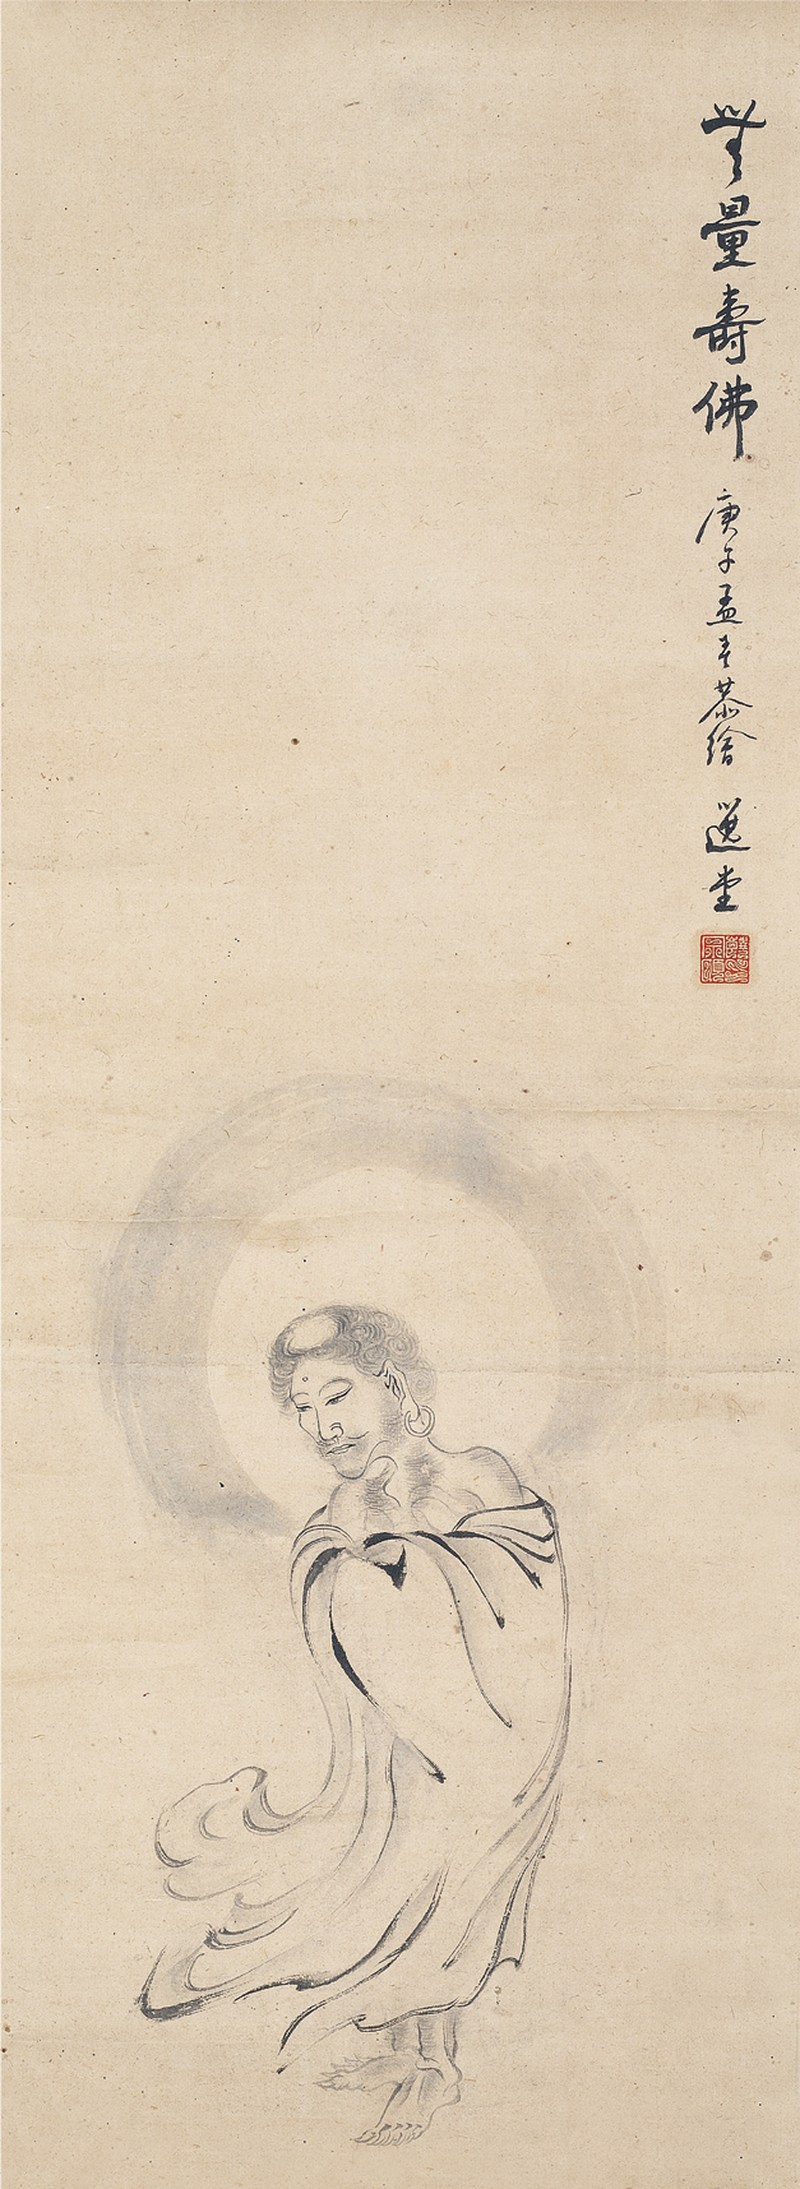 無量壽佛 庚子孟春恭繪 選堂